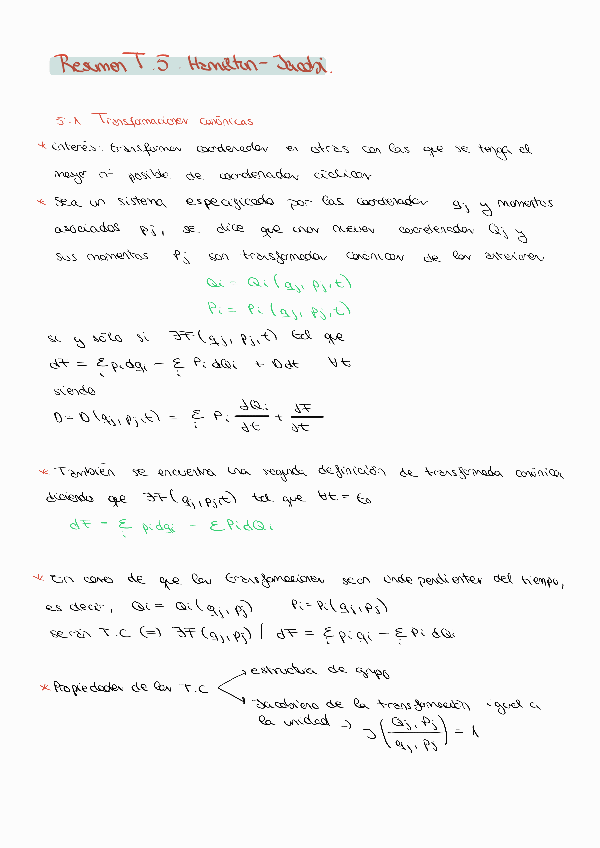 Resumen T.5. Hamilton-Jacobi.
5.1 Transformaciones canónicas
* interés: transformar coordenadas en otras con las que se tenga el
mayor nº posible de coordenadas cíclicas
* Sea un sistema especificado por las coordenadas qj y momentos
asociados pj, se dice que unas nuevas coordenadas Qj y
sus momentos Pj son transformadas canónicas de las anteriores
Qi = Qi(qj, pj, t)
Pi = Pi(qj, pj, t)
si y sólo si ∃F(qj, pj, t) tal que
dF = Σi pidqi - Σi PidQi + Ddt ∀t
siendo
D = D(qj, pj, t) = Σi Pi ∂Qi/∂t + ∂F/∂t
* También se encuentra una segunda definición de transformada canónica
diciendo que ∃F(qj, pj, t) tal que ∀t = t0
dF = Σi pidqi - ΣPidQi
* En caso de que las transformaciones sean independientes del tiempo,
es decir, Qi = Qi(qj, pj) Pi = Pi(qj, pj)
serán T.C (=) ∃F(qj, pj) / dF = Σi piqi - Σi PidQi
* Propiedades de las T.C → estructura de grupo
→ Jacobiano de la transformación igual a
la unidad → J(Qj, Pj / qj, pj) = 1